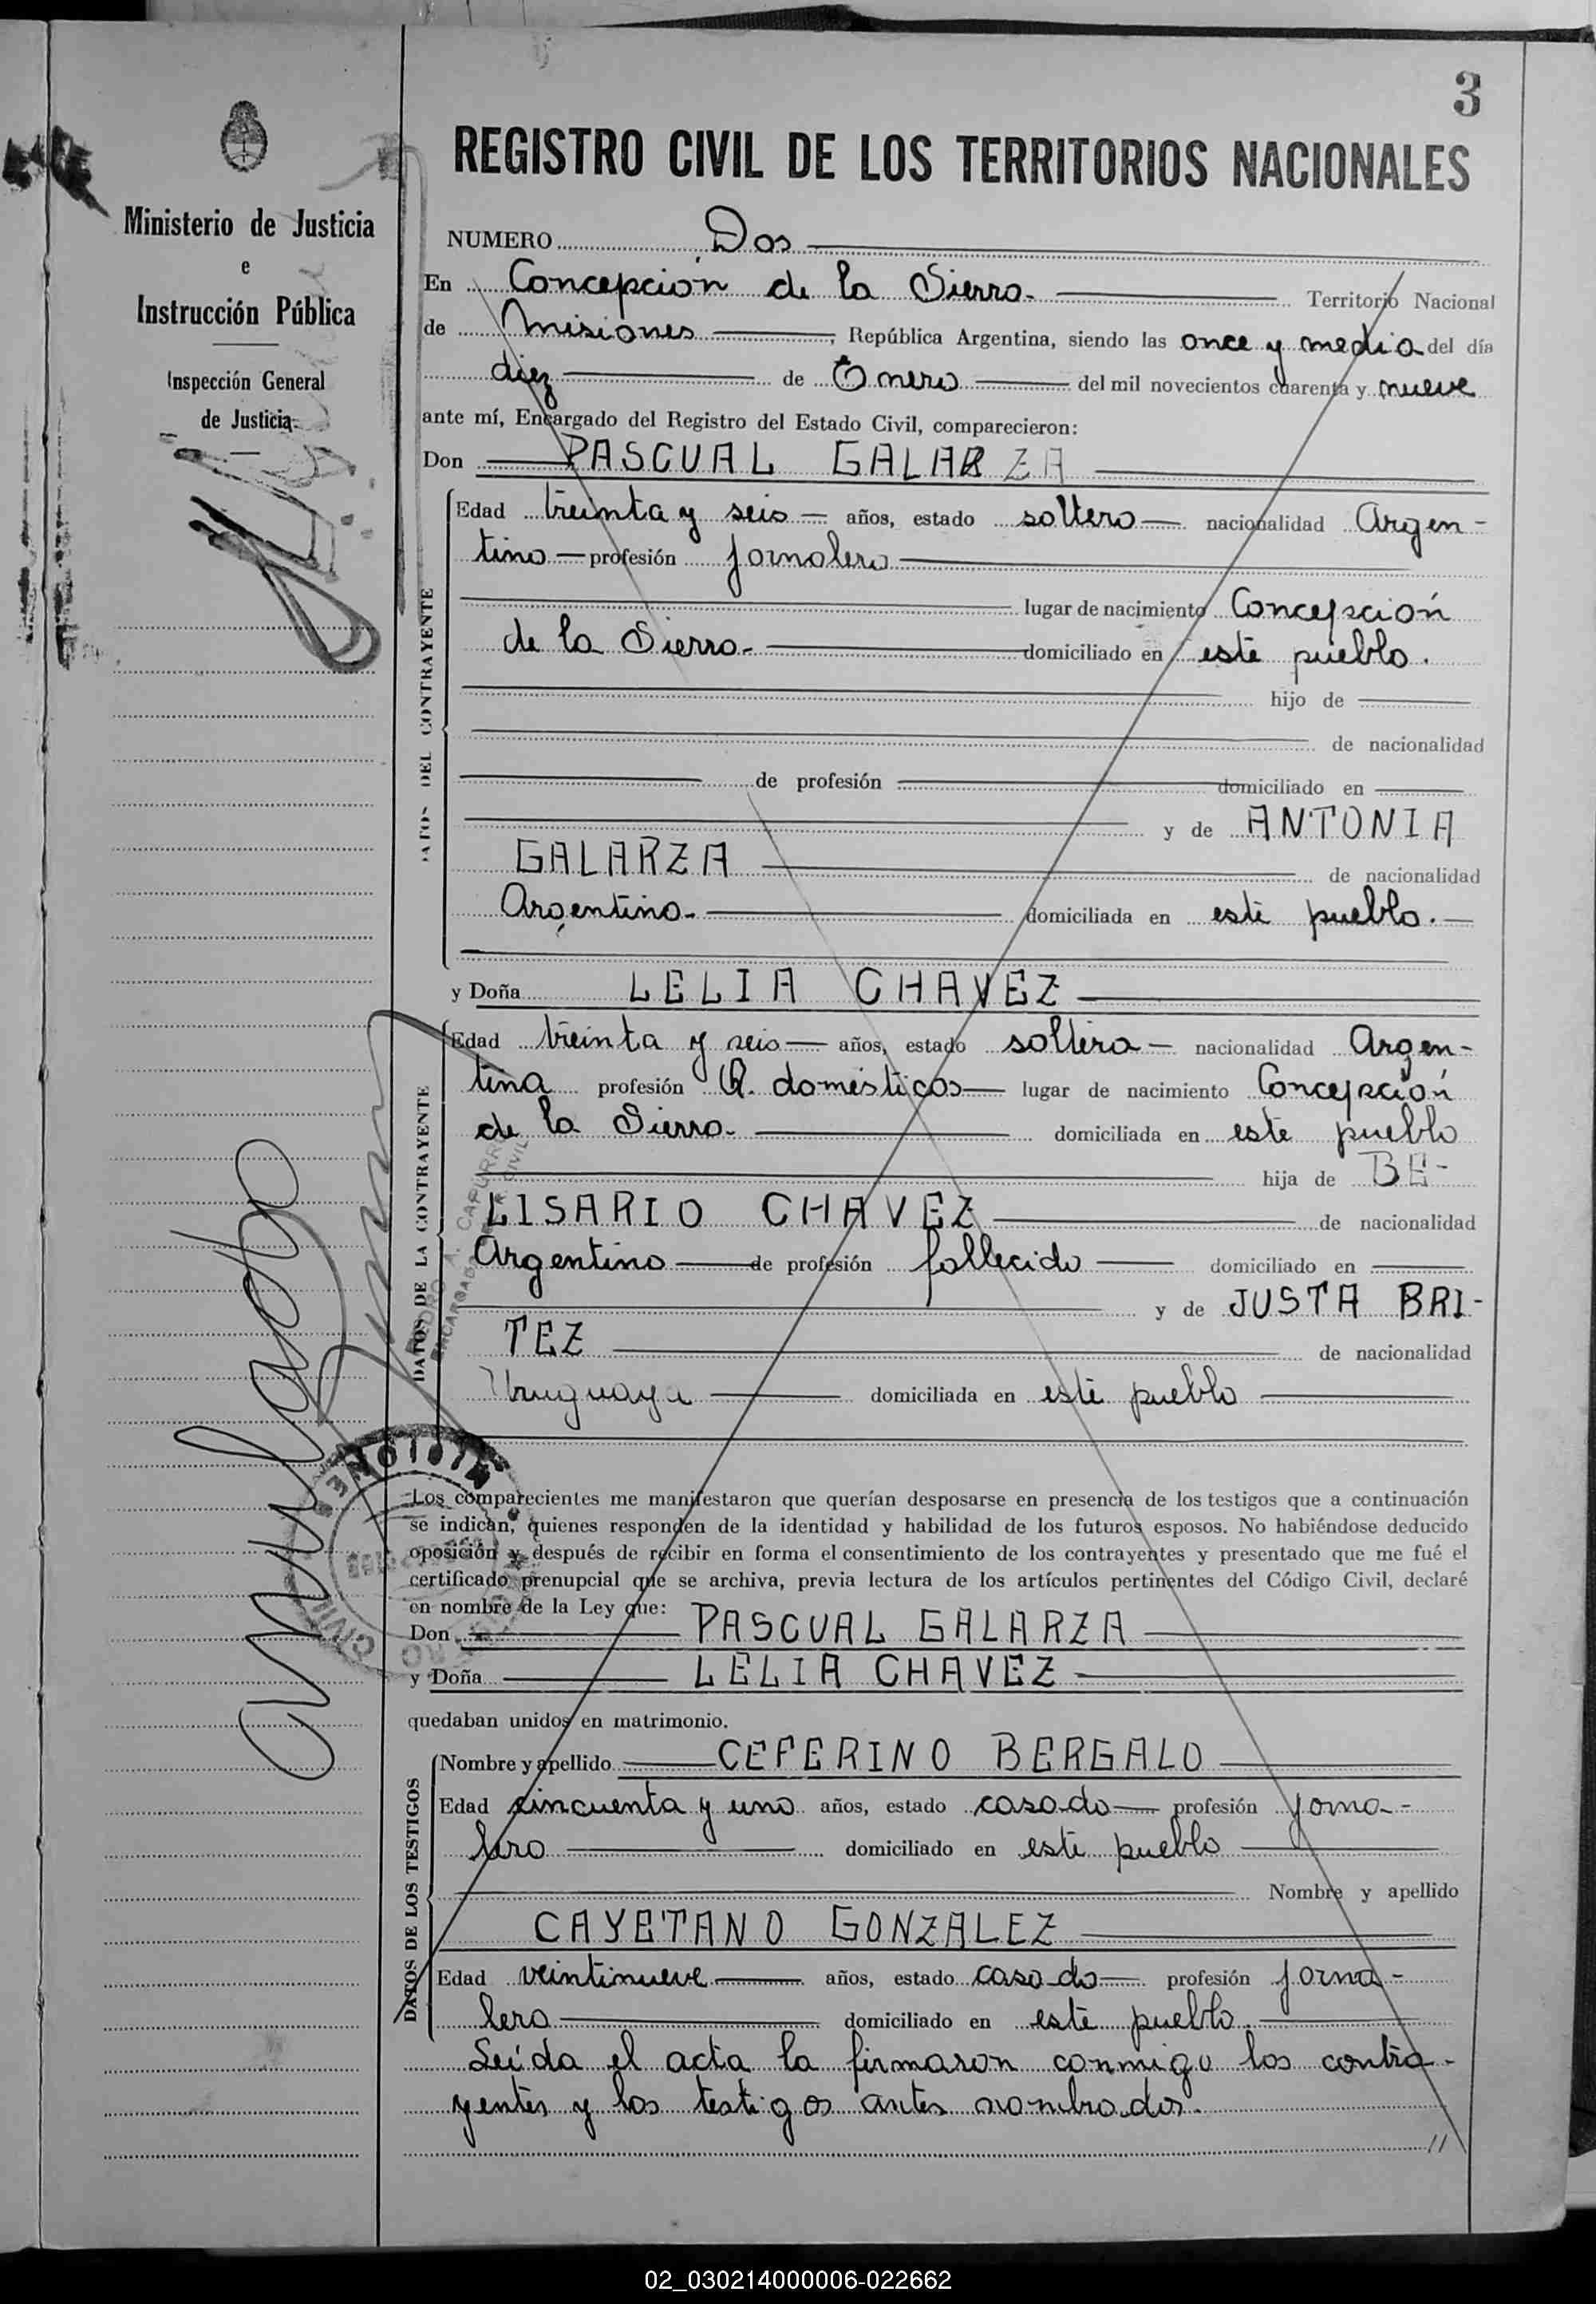 3
REGISTRO CIVIL DE LOS TERRITORIOS NACIONALES
Ministerio de Justicia
e
Instrucción Pública
Inspección General
de Justicia
NUMERO Dos
En Concepción de la Sierra. Territorio Nacional
de Misiones, República Argentina, siendo las once y media del día
diez de Enero del mil novecientos cuarenta y nueve
ante mí, Encargado del Registro del Estado Civil, comparecieron:
Don PASCUAL GALARZA
DATOS DEL CONTRAYENTE
Edad treinta y seis años, estado soltero nacionalidad Argen-
tino profesión jornalero
lugar de nacimiento Concepción
de la Sierra. domiciliado en este pueblo.
hijo de
de nacionalidad
de profesión domiciliado en
y de ANTONIA
GALARZA de nacionalidad
Argentina. domiciliada en este pueblo.
y Doña LELIA CHAVEZ
DATOS DE LA CONTRAYENTE
Edad treinta y seis años, estado soltera nacionalidad Argen-
tina profesión Q. domésticos lugar de nacimiento Concepción
de la Sierra. domiciliada en este pueblo
hija de BE-
LISARIO CHAVEZ de nacionalidad
Argentino de profesión fallecido domiciliado en
y de JUSTA BRI-
TEZ de nacionalidad
Uruguaya domiciliada en este pueblo
PEDRO A. CAPURRO
ENCARGADO CIVIL
MISIONES
CIVIL
anulado
Los comparecientes me manifestaron que querían desposarse en presencia de los testigos que a continuación
se indican, quienes responden de la identidad y habilidad de los futuros esposos. No habiéndose deducido
oposición y después de recibir en forma el consentimiento de los contrayentes y presentado que me fué el
certificado prenupcial que se archiva, previa lectura de los artículos pertinentes del Código Civil, declaré
en nombre de la Ley que:
Don PASCUAL GALARZA
y Doña LELIA CHAVEZ
quedaban unidos en matrimonio.
DATOS DE LOS TESTIGOS
Nombre y apellido CEFERINO BERGALO
Edad cincuenta y uno años, estado casado profesión jorna-
lero domiciliado en este pueblo
Nombre y apellido
CAYETANO GONZALEZ
Edad veintinueve años, estado casado profesión jorna-
lero domiciliado en este pueblo.
Leída el acta la firmaron conmigo los contra-
yentes y los testigos antes nombrados.
//
02_030214000006-022662